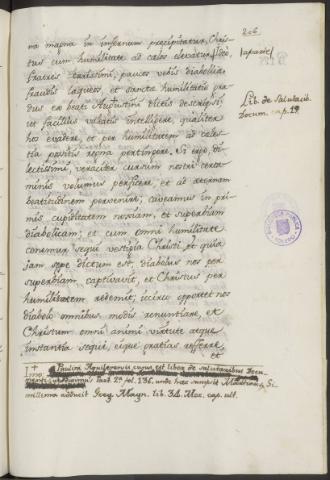 206
na magna in infernum præcipitatur, Chris-
tus cum humilitate ad cælos elevatur. Ideo,
fratres carissimi, paucos vobis diaboli
fraudis laqueos, et sancta humilitatis
ex beati Augustini dictis descripsi,
ut facilius valeatis intelligere, qualiter
hos evadere et per humilitatem ad cæles-
tia possitis regna pertingere. Si ergo, di-
lectissimi, veraciter cursum nostri certa-
minis volumus perficere, et ad æternam
beatitudinem pervenire, caveamus in pri-
mis cupiditatem noxiam, et superbiam
diabolicam; et cum omni humilitate
conemur sequi vestigia Christi, et quia
jam sæpe dictum est, diabolus nos per
superbiam captivavit, et Christus per
humilitatem redemit; idcirco opportet nos
diabolo omnibus modis renuntiare, et
Christum omni animi virtute atque
instantia sequi, eique gratias referre
et
Lib. de Salutarib.
docum. cap. 19
Imo Paulini Aquileiensis cujus est liber de salutaribus docu-
mentis fol. 136. unde hæc sumpsit
millima adducit Greg. Magn. lib. 34. Mor. cap. ult.